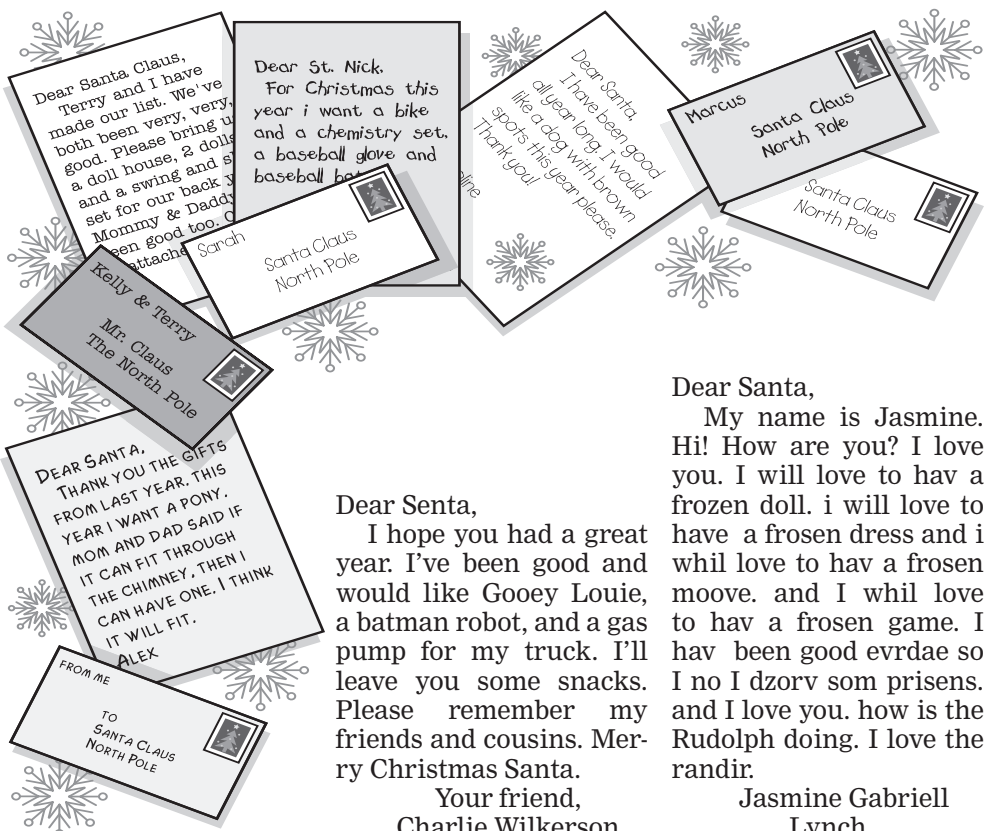 Dear Santa Claus,
Terry and I have
made our list. We've
both been very, very,
good. Please bring
a doll house, 2 dolls
and a swing and
set for our back
Mommy & Daddy
been good too.
Dear St. Nick,
For Christmas this
year i want a bike
and a chemistry set,
a baseball glove and
baseball
Dear Santa,
I have been good
all year long. I would
like a dog with brown
spots this year please.
Thank you!
Marcus
Santa Claus
North Pole
Santa Claus
North Pole
Sarah
Santa Claus
North Pole
Kelly & Terry
Mr. Claus
The North Pole
DEAR SANTA,
THANK YOU THE GIFTS
FROM LAST YEAR. THIS
YEAR I WANT A PONY.
MOM AND DAD SAID IF
IT CAN FIT THROUGH
THE CHIMNEY, THEN I
CAN HAVE ONE. I THINK
IT WILL FIT.
ALEX
FROM ME
TO
SANTA CLAUS
NORTH POLE
Dear Senta,
I hope you had a great
year. I've been good and
would like Gooey Louie,
a batman robot, and a gas
pump for my truck. I'll
leave you some snacks.
Please remember my
friends and cousins. Mer-
ry Christmas Santa.
Your friend,
Charlie Wilkerson
Dear Santa,
My name is Jasmine.
Hi! How are you? I love
you. I will love to hav a
frozen doll. i will love to
have a frosen dress and i
whil love to hav a frosen
moove. and I whil love
to hav a frosen game. I
hav been good evrdae so
I no I dzorv som prisens.
and I love you. how is the
Rudolph doing. I love the
randir.
Jasmine Gabriell
Lynch